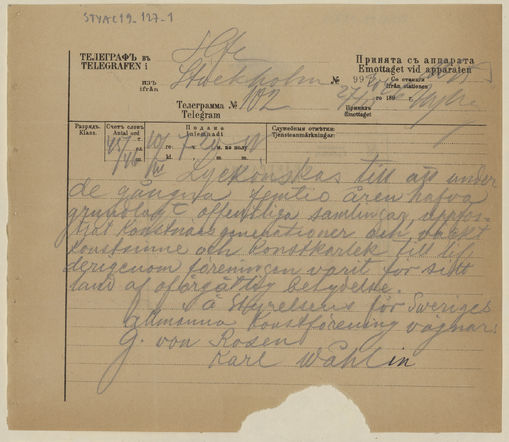 STYAC19_127_1
ТЕЛЕГРАФЪ въ
TELEGRAFEN i
Hfs
Принята съ аппарата
Emottaget vid apparaten
изъ
ifrån
Stockholm
№ 997
Со станціи
ifrån stationen
Телеграмма №
Telegram
102
27/
го 189 г.
Принялъ
Emottaget
Разрядъ.
Klass.
Счетъ словъ
Antal ord
Подана
inlemnadt
го ч. м. по полу
kl. m.
Служебныя отмѣтки:
Tjensteanmärkningar:
Lyckönskas till att under
de gångna femtio åren hafva
grundlagt offentliga samlingar, uppos-
trat konstnärsgenerationer och väckt
konstsinne och konstkärlek till lif,
derigenom föreningen varit för sitt
land af oförgätlig betydelse.
å Styrelsens för Sveriges
allmänna konstförening vägnar:
G. von Rosen
Karl Wåhlin